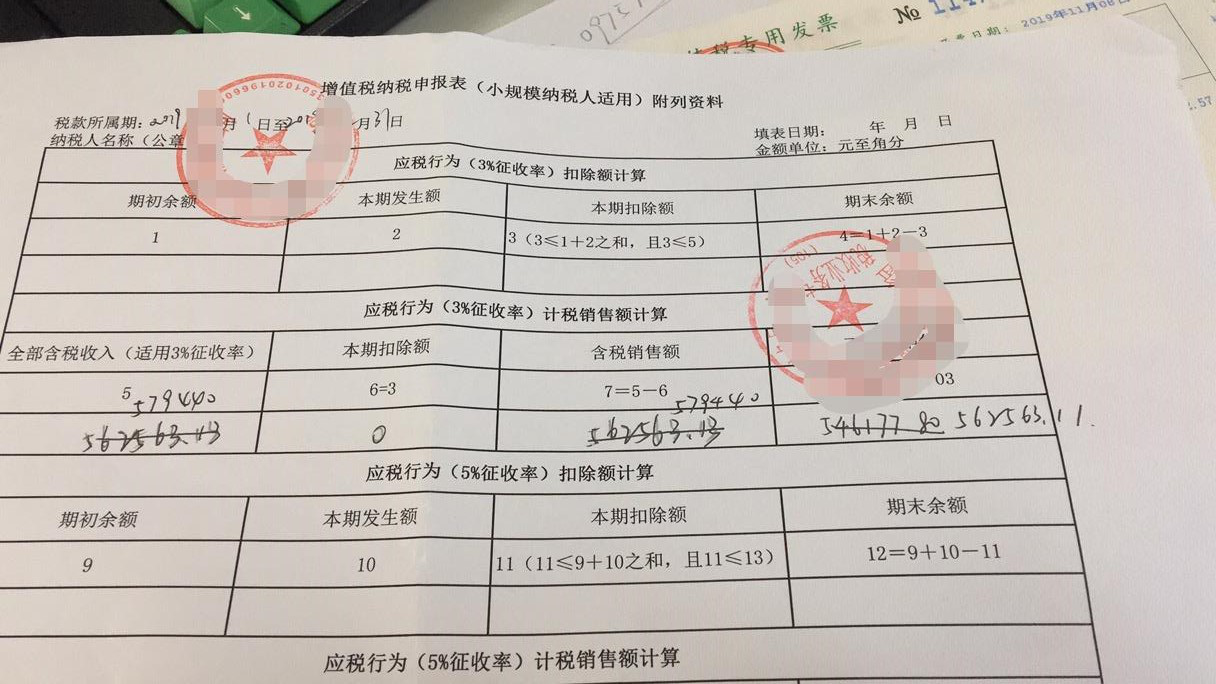 No
专用发票
2019年11月08日
增值税纳税申报表（小规模纳税人适用）附列资料
税款所属期：2019 月1日至 月31日
填表日期： 年 月 日
纳税人名称（公章
金额单位：元至角分
应税行为（3%征收率）扣除额计算
期初余额 本期发生额 本期扣除额 期末余额
1 2 3（3≤1+2之和，且3≤5） 4=1+2-3
应税行为（3%征收率）计税销售额计算
全部含税收入（适用3%征收率） 本期扣除额 含税销售额
5 6=3 7=5-6 03
579440 579440
562563.13 0 562563.13 546177 80 562563.11.
应税行为（5%征收率）扣除额计算
期初余额 本期发生额 本期扣除额 期末余额
9 10 11（11≤9+10之和，且11≤13） 12=9+10-11
应税行为（5%征收率）计税销售额计算